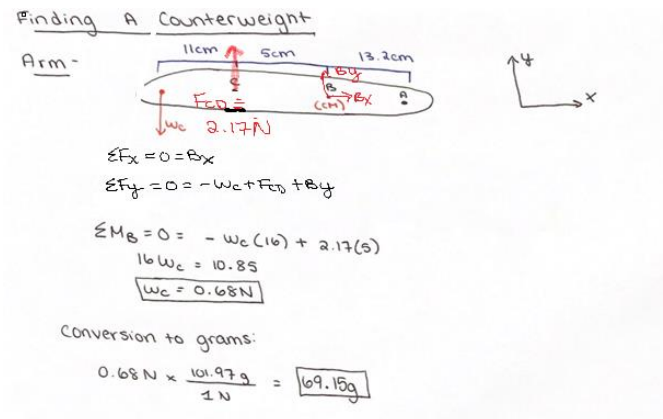 Finding A Counterweight
Arm-
11cm 5cm 13.2cm
By
B
Bx
(cm)
A
C
FCD =
2.17N
Wc
y
x
ΣFx = 0 = Bx
ΣFy = 0 = -Wc + FCD + By
ΣMB = 0 = - Wc (16) + 2.17(5)
16 Wc = 10.85
Wc = 0.68N
Conversion to grams:
0.68N × 101.97g / 1N = 69.15g